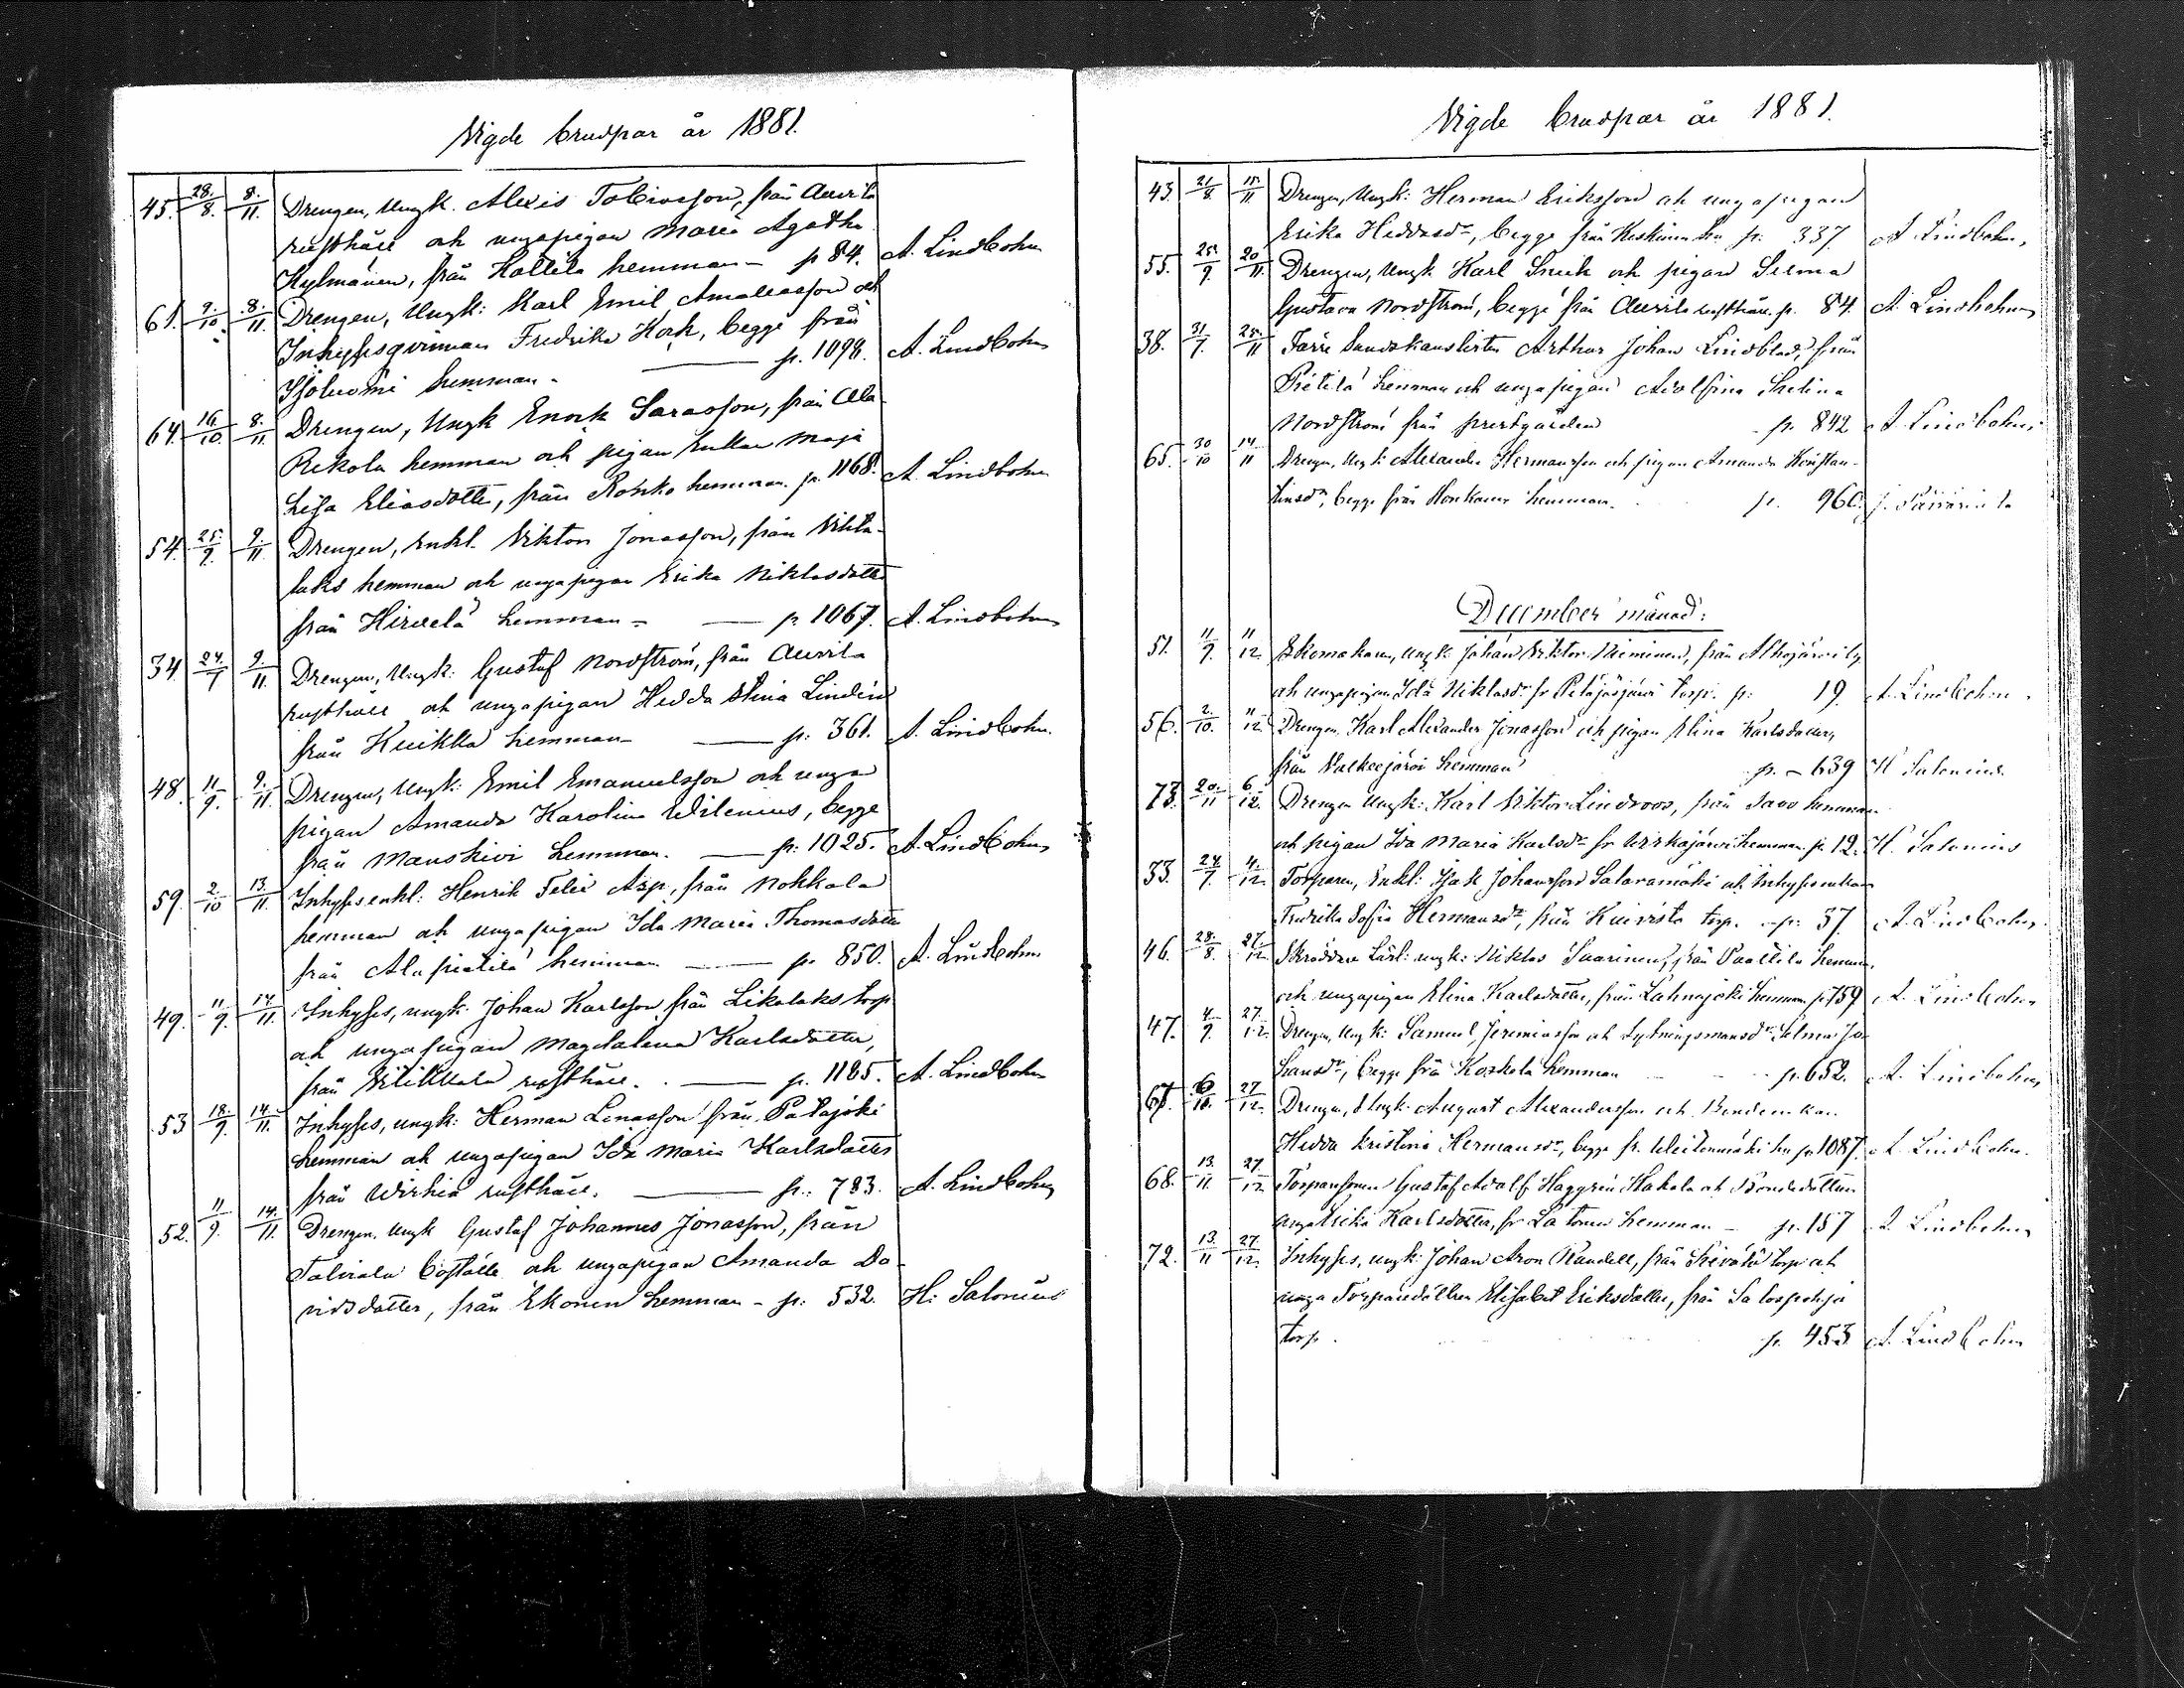 Vigde brudpar år 1881.
45. 28/8. 8/11. Drengen, Ungk. Alexis Tobiasson, från Auvila
rusthåll och ungapigan Maria Agatha
Kylmänen, från Kollila hemman – p 84. A. Lindbohm
61. 9/10 8/11. Drengen, Ungk: Karl Emil Amaliasson och
Inhysesqvinnan Fredrika Kock, begge från
Isoluomi hemman. — p. 1098. A. Lindbohm
64. 16/10. 8/11. Drengen, Ungk Enock Sarasson, från Ala
Rekola hemman och pigan Enkan Maja
Lisa Eliasdotter, från Rohko hemman. p. 1168. A. Lindbohm
54. 25/9. 9/11. Drengen, Enkl. Viktor Jonasson, från
hemman och ungapigan Erika Niklasdotter
från Hirvelä hemman – — p 1067. A. Lindbohm
34 24/7 9/11. Drengen, Ungk: Gustaf Nordström, från Auvila
rusthåll och ungapigan Hedda Stina Lindén
från Kuikka hemman — p: 361. A. Lindbohm.
48. 11/9. 9/11. Drengen, Ungk: Emil Emanuelsson och unga
pigan Amanda Karolina Wilenius, begge
från Manskivi hemman. — p: 1025. A. Lindbohm
59. 2/10 13/11. Inhysesenkl: Henrik Felix Asp, från Nokkala
hemman och ungapigan Ida Maria Thomasdotter
från Alapietilä hemman — p. 850. A. Lindbohm
49. 11/9. 14/11. Inhyses, ungk: Johan Karlsson från Likolaks torp
och ungapigan Magdalena Karlsdotter,
från rusthåll. — p. 1185. A. Lindbohm
53 18/9. 14/11. Inhyses, ungk: Herman Lenasson från Patajoki
hemman och ungapigan Ida Maria Karlsdotter
från Wirkiä rusthåll. — p: 783. A. Lindbohm
52. 11/9. 14/11. Drengen, Ungk Gustaf Johannes Jonasson, från
Talviala boställe och ungapigan Amanda Da-
vidsdotter, från Ekonen hemman – p: 532. H: Salonius
Vigde brudpar år 1881.
43. 21/8. 15/11 Drengen, Ungk: Herman Eriksson och ungapigan
Erika Heddasdr, begge från Keskinen hn p: 337 A Lindbohm.
55. 25/9. 20/11. Drengen, Ungk Karl Snek och pigan Selma
Gustava Nordström, begge från Auvila rusthåll. p. 84. A. Lindbohm
38. 31/7. 25/11 Färre Sundskanslisten Arthur Johan Lindblad, från
Pietilä hemman och ungapigan Adolfina
Nordström från prestgården p. 842 A. Lindbohm
65. 30/10 14/11 Drengen, Ungk: Alexander Hermansson och pigan Amanda Konstan-
tinsdr, begge från Honkanen hemman. p. 960.
December månad:
51. 11/9. 11/12. Skomakaren, ungk: Johan Viktor Nieminen, från Alhojärvi
och ungapigan Ida Niklasdr fr Petäjäsjärvi torp. p: 19. A. Lindbohm.
56. 2/10. 11/12 Drengen, Karl Alexander Jonasson och pigan Elina Karlsdotter,
från Valkeejärvi hemman p. – 639 H Salonius.
73. 20/11 6/12. Drengen Ungk: Karl Viktor Lindroos, från Savo hemman
och pigan Ida Maria Karlsdr fr Wirkajärvi hemman p. 12. H. Salonius
33. 24/7. 4/12. Torparen, Enkl: Isak Johansson Salaramäki och Inhysesenkan
Fredrika Sofia Hermansdr, från Kuivisto torp. – p: 37. A. Lindbohm
46. 28/8. 27/12 Skräddare Lärl: ungk: Niklas Saarinen, från Paattila hemman,
och ungapigan Elina Karlsdotter, från Lahnajoki hemman p. 759 A. Lindbohm
47. 4/9. 27/12. Drengen, Ungk: Samuel Jeremiasson och Sytningsmansdr Selma Jo-
hansdr, begge från Koskela hemman p. 652. A. Lindbohm
67. 6/10. 27/12. Drengen, Ungk: August Alexandersson och Bondenkan
Hedda Kristina Hermansdr, begge fr. Weitenmäki hn p. 1087. A. Lindbohm.
68. 13/11 27/12 Torparsonen Gustaf Adolf Haggrén Hakala och Bondedottren
unga Erika Karlsdotter, fr Latonen hemman – p. 157 A Lindbohm
72. 13/11 27/12. Inhyses, ungk: Johan Aron Randell, från torp och
unga Torparedottren Elisabet Eriksdotter, från
torp. p. 453 A. Lindbohm